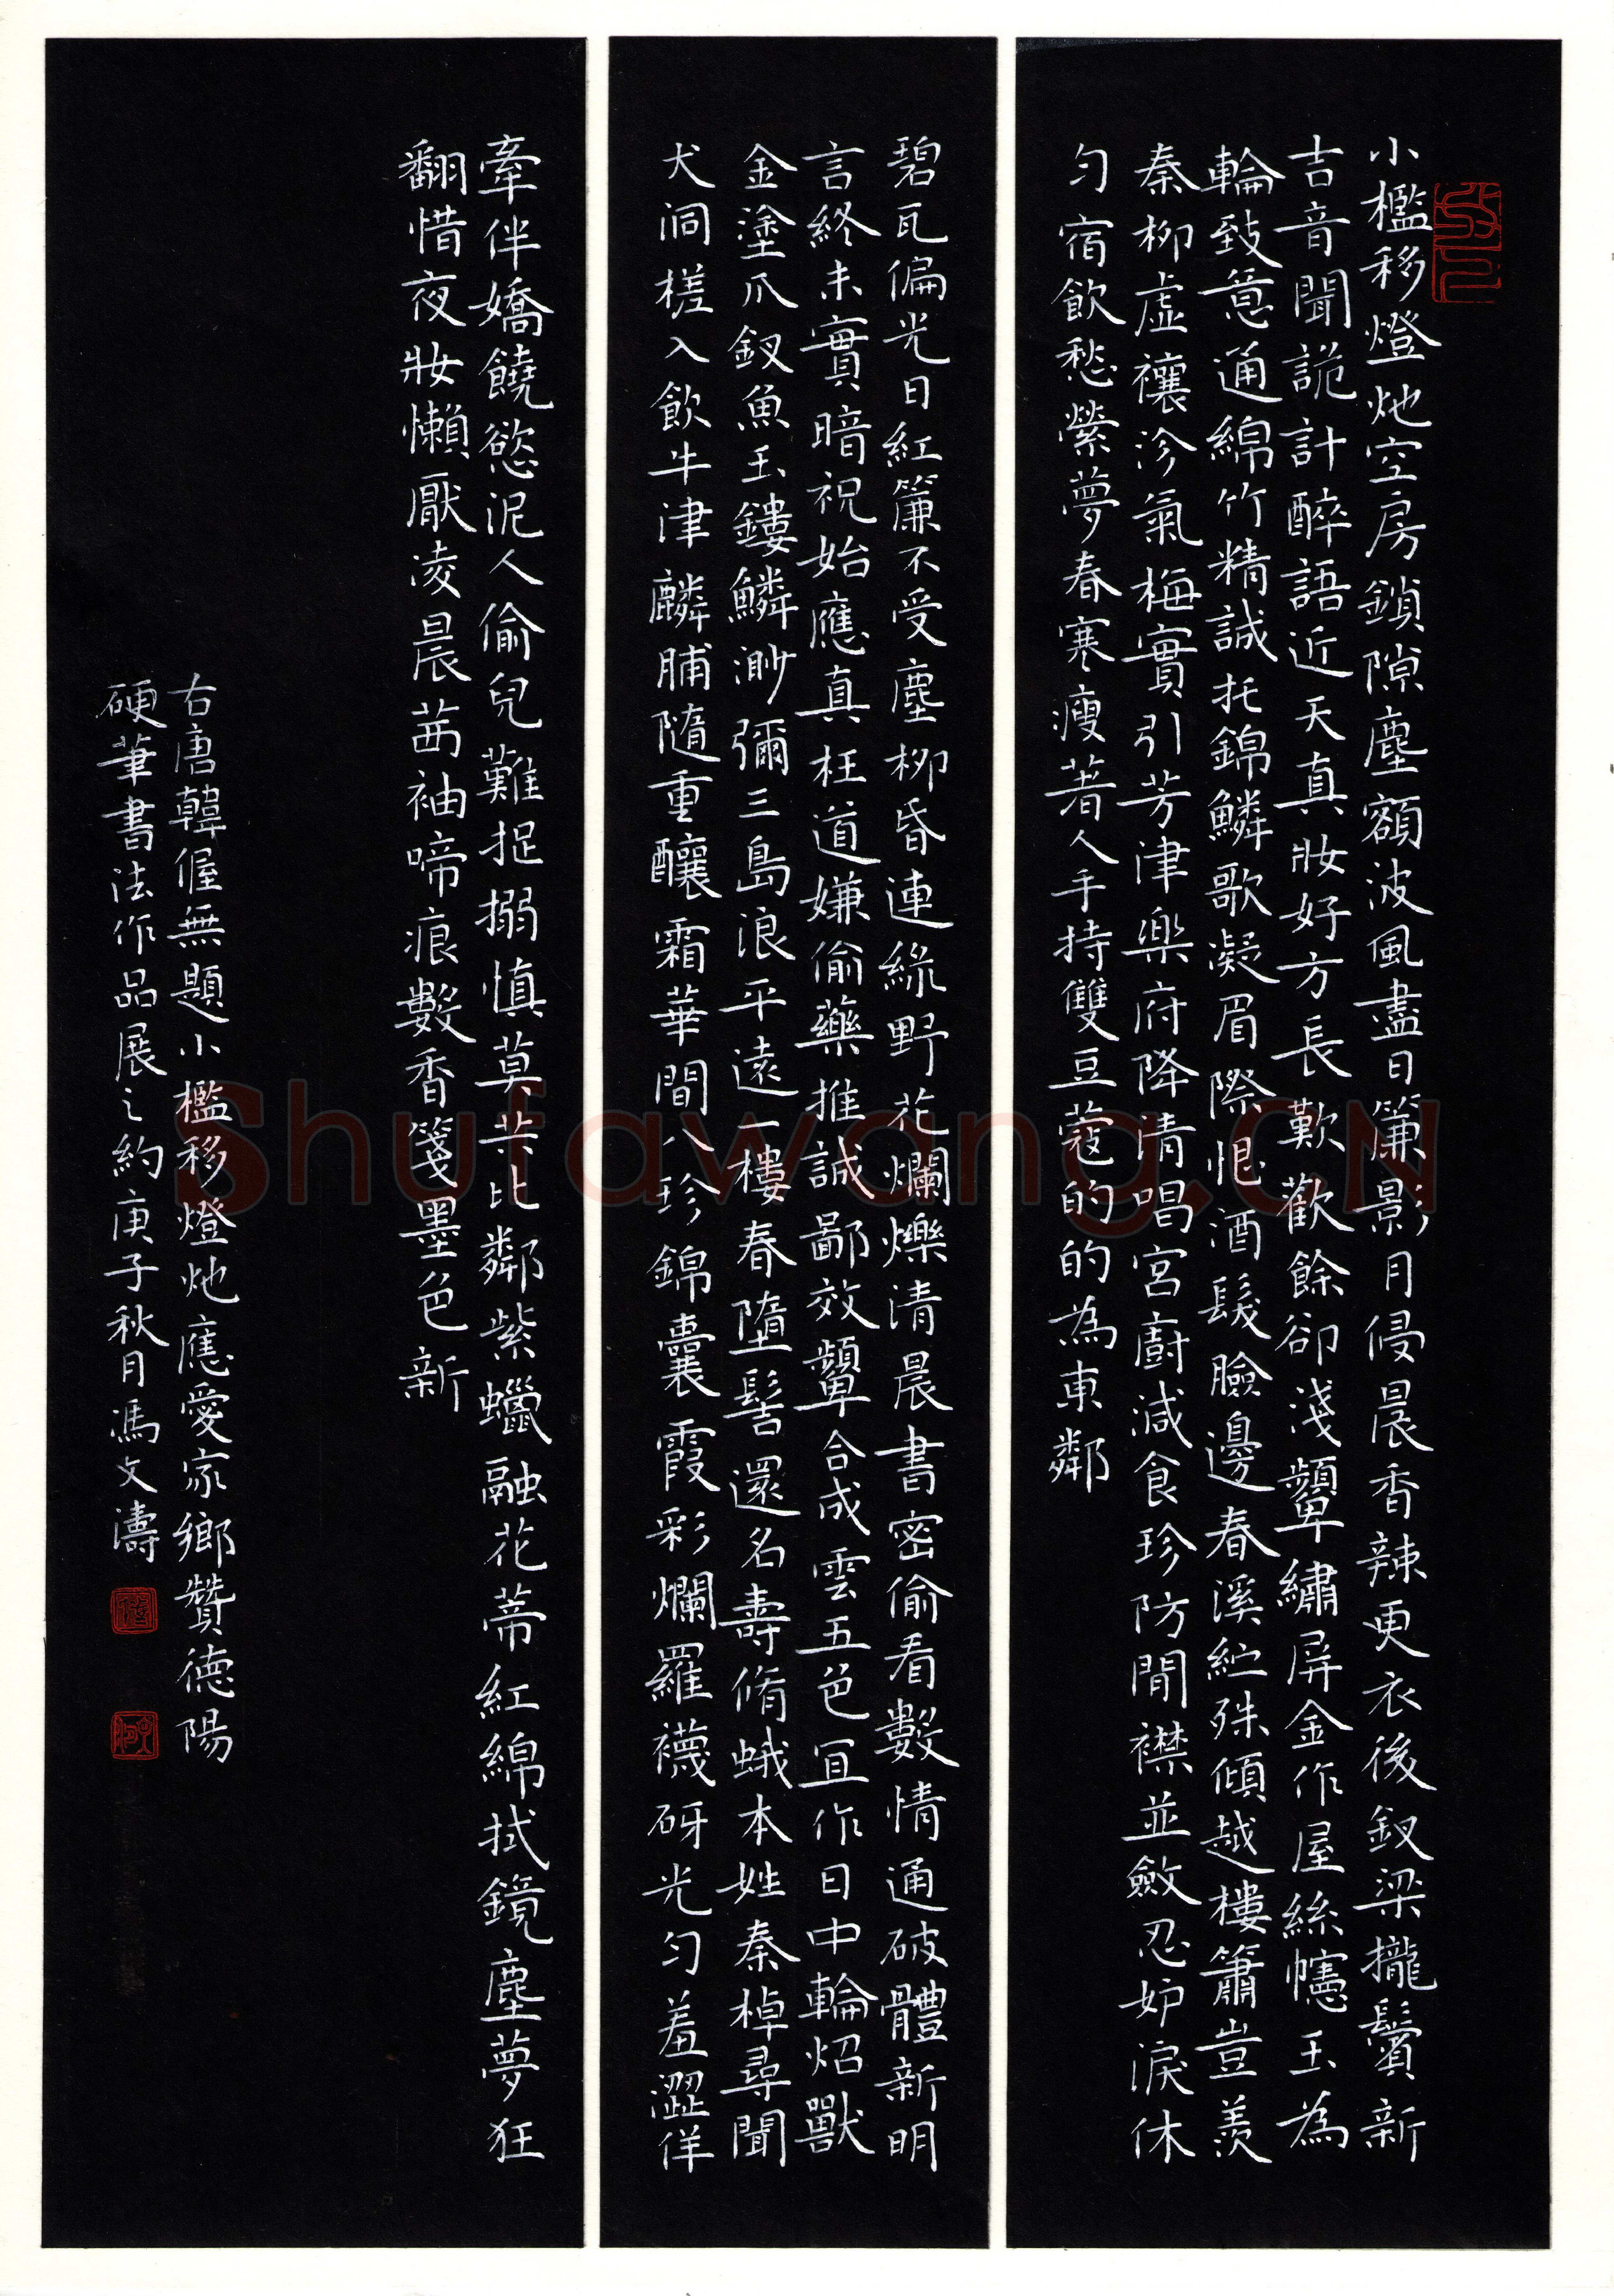 小檻移燈灺空房鎖隙塵額波風盡日簾影月侵晨香辣更衣後釵梁攏鬢新
吉音聞詭計醉語近天真妝好方長歎歡餘卻淺顰繡屏金作屋絲幰玉為
輪致意通綿竹精誠托錦鱗歌凝眉際恨酒髮臉邊春溪紅殊傾越樓簫豈羨
秦柳虛禳沴氣梅實引芳津樂府降清唱宮廚減食珍防閒襟並斂忍妒淚休
勻宿飲愁縈夢春寒瘦著人手持雙豆蔻的的為東鄰
碧瓦偏光日紅簾不受塵柳昏連綠野花爛爍清晨書密偷看數情通破體新明
言終未實暗祝始應真枉道嫌偷藥推誠鄙效顰合成雲五色宜作日中輪炤獸
金塗爪釵魚玉鏤鱗渺彌三島浪平遠一樓春墮髻還名壽脩蛾本姓秦棹尋聞
犬洞槎入飲牛津麟脯隨重釀霜華間八珍錦囊霞彩爛羅襪砑光勻羞澀佯
牽伴嬌饒慾泥人偷兒難捉搦慎莫共比鄰紫蠟融花蒂紅綿拭鏡塵夢狂
翻惜夜妝懶厭凌晨茜袖啼痕數香箋墨色新
右唐韓偓無題小檻移燈灺應愛家鄉贊德陽
硬筆書法作品展之約庚子秋月馮文濤
Shufawang.CN